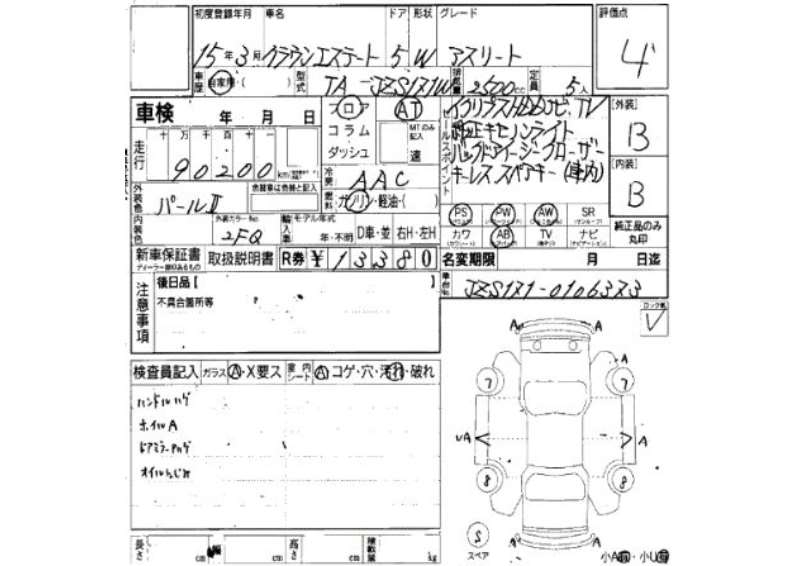 初度登録年月 車名 ドア 形状 グレード 評価点
15年3月 クラウンエステート 5 W アスリート 4
車歴 自家用・( ) 型式 TA-JZS171W 排気量 2500cc 定員 5人
車検 年 月 日 フロア AT
コラム MTのみ記入
ダッシュ 速
走行 十 万 千 百 十 一
90200 km
冷房 AAC
燃料 ガソリン・軽油・( )
セールスポイント
イクリプスHDDナビ、TV
純正キセノンライト
バックドアイージークローザー
キーレス スペアキー (車内)
[外装] B
[内装] B
外装色 パールⅡ 色替車は色替と記入
内装色 外装カラーNo. 2FQ
輸入車 モデル年式 年・不明 D車・並 右H・左H
PS PW AW SR
カワ AB TV ナビ
純正品のみ丸印
新車保証書 取扱説明書 R券 ¥ 13380
名変期限 月 日迄
JZS171-0106373
注意事項
後日品[ ]
不具合箇所等
検査員記入 ガラス A・X要ス 室内シート A コゲ・穴・汚れ・破れ
ハンドルハゲ
ホイルA
ドアミラーAハゲ
オイルにじみ
A A
7 7 A
VA A
8 8
S
スペア
A A
小A・小U
長さ cm 幅 cm 高さ cm 積載量 kg